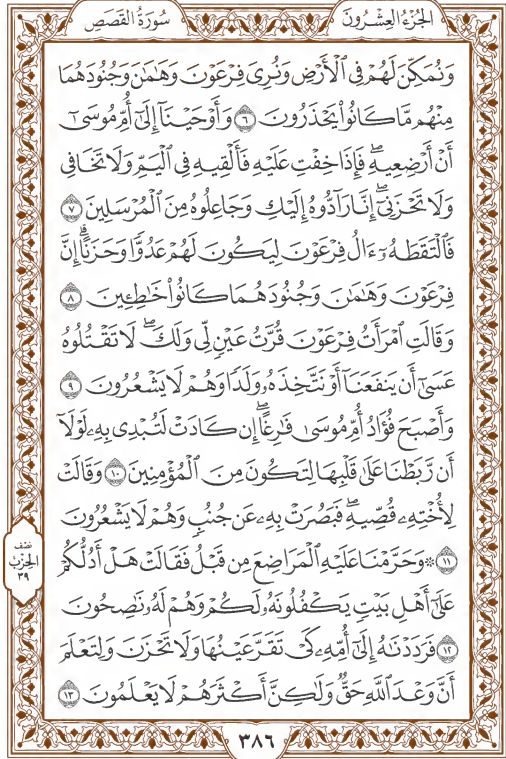 سُورَةُ القَصَصِ
الجُزْءُ العِشْرُونَ
وَنُمَكِّنَ لَهُمْ فِي ٱلْأَرْضِ وَنُرِيَ فِرْعَوْنَ وَهَٰمَٰنَ وَجُنُودَهُمَا
مِنْهُم مَّا كَانُوا۟ يَحْذَرُونَ ٦ وَأَوْحَيْنَآ إِلَىٰٓ أُمِّ مُوسَىٰٓ
أَنْ أَرْضِعِيهِ ۖ فَإِذَا خِفْتِ عَلَيْهِ فَأَلْقِيهِ فِي ٱلْيَمِّ وَلَا تَخَافِي
وَلَا تَحْزَنِىٓ ۖ إِنَّا رَآدُّوهُ إِلَيْكِ وَجَاعِلُوهُ مِنَ ٱلْمُرْسَلِينَ ٧
فَٱلْتَقَطَهُۥٓ ءَالُ فِرْعَوْنَ لِيَكُونَ لَهُمْ عَدُوًّا وَحَزَنًا ۗ إِنَّ
فِرْعَوْنَ وَهَٰمَٰنَ وَجُنُودَهُمَا كَانُوا۟ خَٰطِـِٔينَ ٨
وَقَالَتِ ٱمْرَأَتُ فِرْعَوْنَ قُرَّتُ عَيْنٍ لِّي وَلَكَ ۖ لَا تَقْتُلُوهُ
عَسَىٰٓ أَن يَنفَعَنَآ أَوْ نَتَّخِذَهُۥ وَلَدًا وَهُمْ لَا يَشْعُرُونَ ٩
وَأَصْبَحَ فُؤَادُ أُمِّ مُوسَىٰ فَٰرِغًا ۖ إِن كَادَتْ لَتُبْدِي بِهِۦ لَوْلَآ
أَن رَّبَطْنَا عَلَىٰ قَلْبِهَا لِتَكُونَ مِنَ ٱلْمُؤْمِنِينَ ١٠ وَقَالَتْ
لِأُخْتِهِۦ قُصِّيهِ ۖ فَبَصُرَتْ بِهِۦ عَن جُنُبٍ وَهُمْ لَا يَشْعُرُونَ
١١ ۞ وَحَرَّمْنَا عَلَيْهِ ٱلْمَرَاضِعَ مِن قَبْلُ فَقَالَتْ هَلْ أَدُلُّكُمْ
عَلَىٰٓ أَهْلِ بَيْتٍ يَكْفُلُونَهُۥ لَكُمْ وَهُمْ لَهُۥ نَٰصِحُونَ
١٢ فَرَدَدْنَٰهُ إِلَىٰٓ أُمِّهِۦ كَيْ تَقَرَّ عَيْنُهَا وَلَا تَحْزَنَ وَلِتَعْلَمَ
أَنَّ وَعْدَ ٱللَّهِ حَقٌّ وَلَٰكِنَّ أَكْثَرَهُمْ لَا يَعْلَمُونَ ١٣
نصف
الحزب
٣٩
٣٨٦